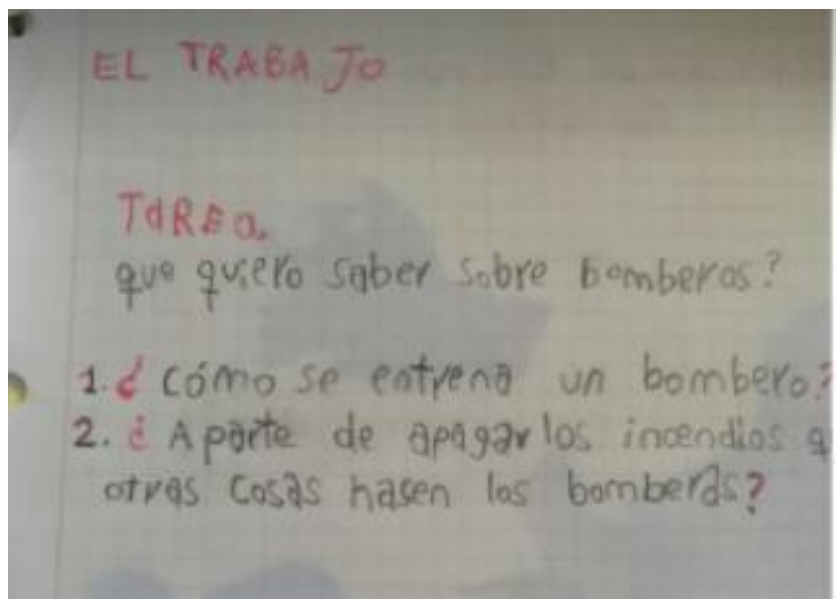 EL TRABAJO
TaREa.
que quiero saber sobre bomberos?
1. ¿ cómo se entrena un bombero?
2. ¿ Aparte de apagar los incendios q
otras cosas hasen los bomberos?